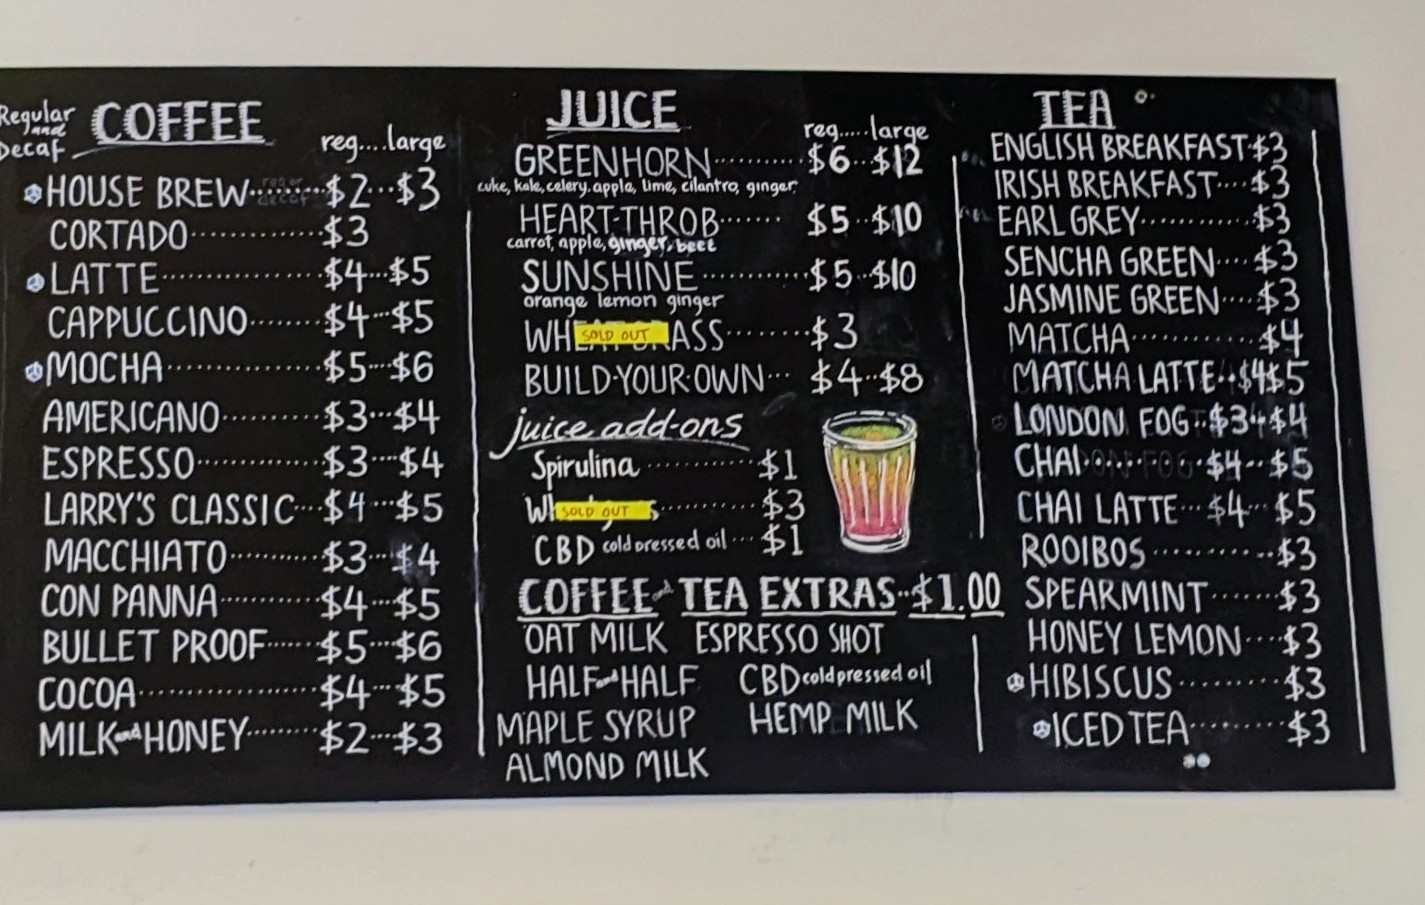 Regular and Decaf
COFFEE
reg....large
HOUSE BREW........$2...$3
CORTADO.............$3
LATTE................$4...$5
CAPPUCCINO........$4...$5
MOCHA...............$5...$6
AMERICANO..........$3...$4
ESPRESSO............$3....$4
LARRY'S CLASSIC...$4...$5
MACCHIATO.........$3...$4
CON PANNA..........$4...$5
BULLET PROOF......$5...$6
COCOA.................$4...$5
MILK and HONEY........$2...$3
JUICE
reg.....large
GREENHORN..........$6..$12
cuke, kale, celery, apple, lime, cilantro, ginger
HEART-THROB.......$5..$10
carrot, apple, ginger, beet
SUNSHINE...........$5..$10
orange lemon ginger
WH SOLD OUT ASS........$3
BUILD·YOUR·OWN...$4..$8
juice add-ons
Spirulina...........$1
Wh SOLD OUT s.........$3
CBD cold pressed oil...$1
COFFEE and TEA EXTRAS..$1.00
OAT MILK ESPRESSO SHOT
HALF and HALF CBD cold pressed oil
MAPLE SYRUP HEMP MILK
ALMOND MILK
TEA
ENGLISH BREAKFAST.$3
IRISH BREAKFAST....$3
EARL GREY...........$3
SENCHA GREEN....$3
JASMINE GREEN....$3
MATCHA............$4
MATCHA LATTE..$4$5
LONDON FOG..$3..$4
CHAI.........$4...$5
CHAI LATTE...$4...$5
ROOIBOS...........$3
SPEARMINT.......$3
HONEY LEMON....$3
HIBISCUS.........$3
ICED TEA........$3